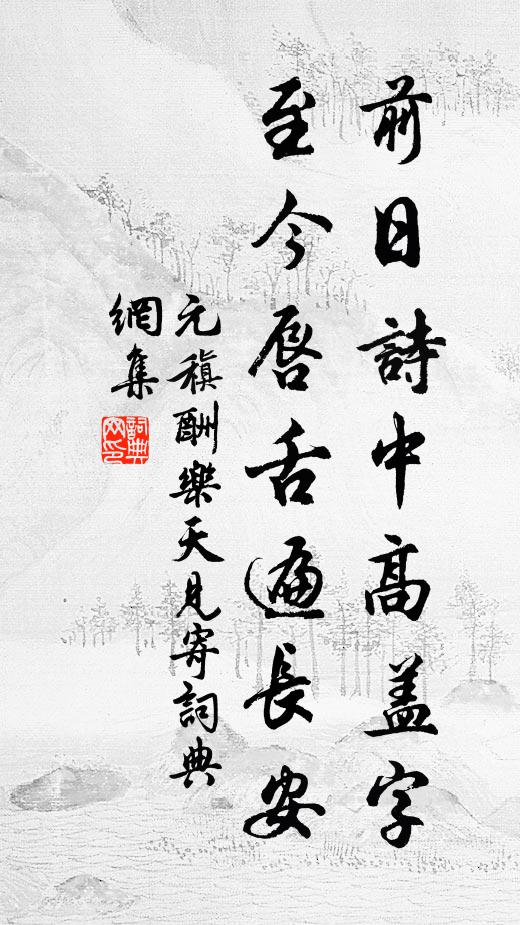 前日詩中高盖字
至今唇舌遍長安
元稹酬樂天見寄詞典
網集
詞典
网印